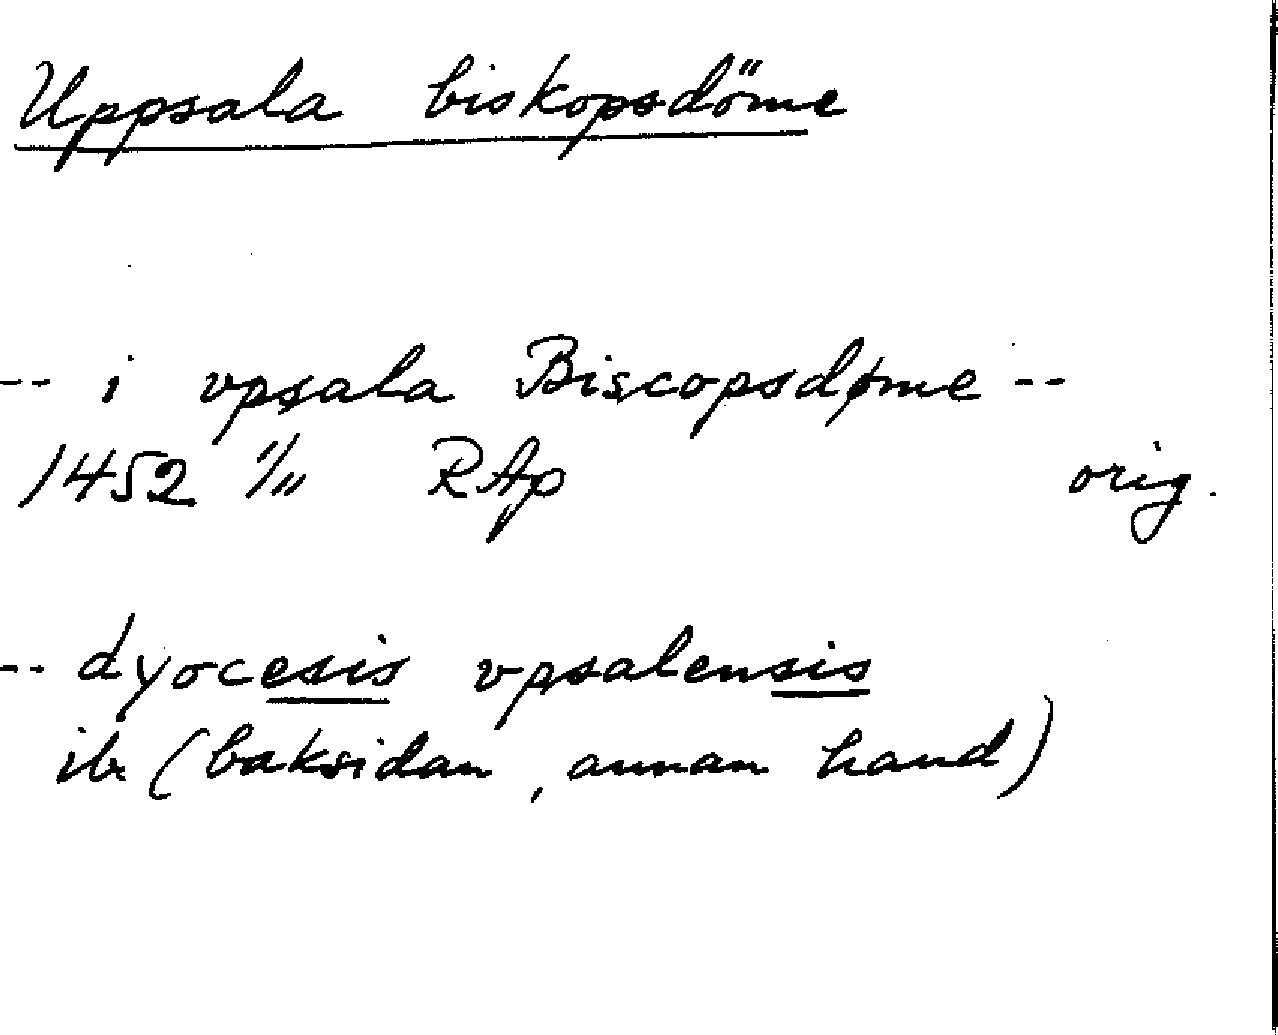 Uppsala biskopsdöme
-- i vpsala Biscopsdøme --
1452 1/11 RAp orig.
-- dyocesis vpsalensis
ib (baksidan, annan hand)